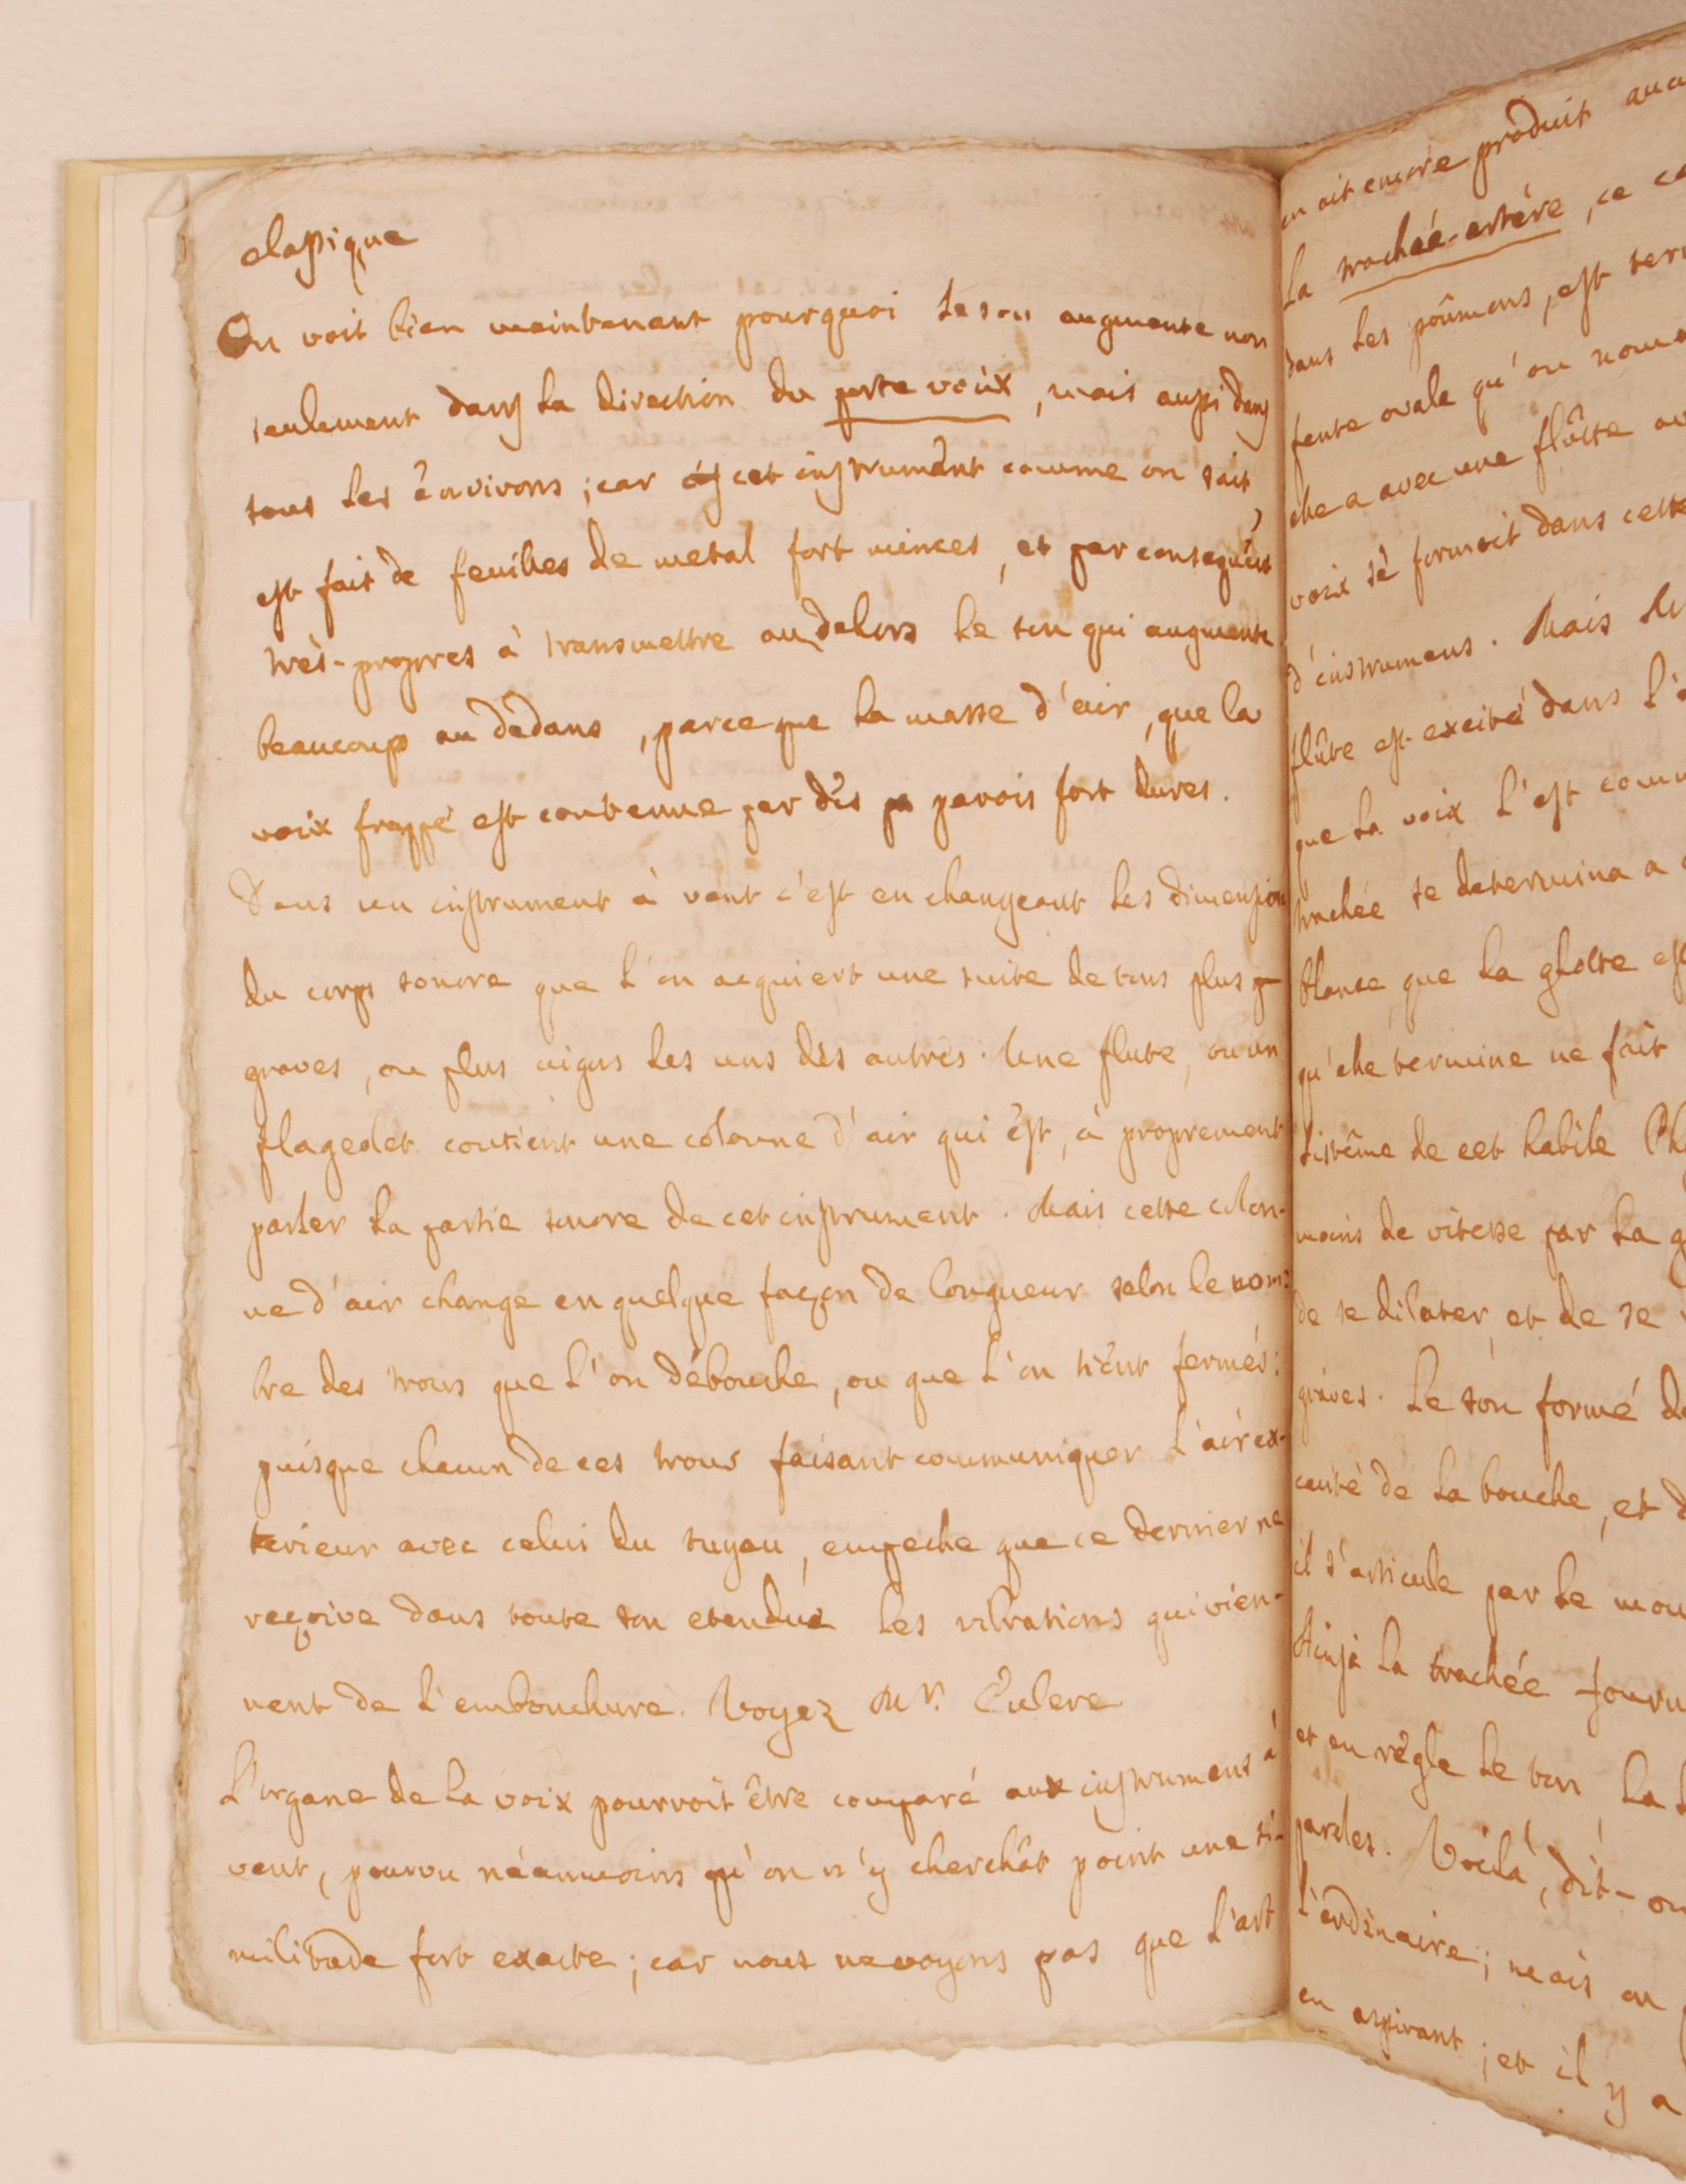 elassique
On voit bien maintenant pourquoi le son augmente non
seulement dans la direction du porte voix, mais aussi dans
tous les environs; car cet instrument comme on sait,
est fait de feuilles de metal fort minces, et par consequent
très-propres à transmettre au dehors le son qui augmente
beaucoup au dedans, parceque la masse d'air, que la
voix frappe est contenue par des parois fort dures.
Dans un instrument à vent c'est en changeant les dimension
du corps sonore que l'on acquiert une suite de tons plus
graves, ou plus aigus les uns des autres. Une flute, ou un
flageolet contient une colonne d'air qui est, à proprement
parler la partie sonore de cet instrument. Mais cette colon-
ne d'air change en quelque façon de longueur selon le nom-
bre des trous que l'on débouche, ou que l'on tient fermés:
puisque chacun de ces trous faisant communiquer l'air ex-
terieur avec celui du tuyau, empeche que ce dernier ne
reçoive dans toute son etendue les vibrations qui vien-
nent de l'embouchure. Voyez Mr. Eulere
L'organe de la voix pourroit être comparé aux instrumens à
vent, pourvu néanmoins qu'on n'y cherchât point une si-
militude fort exacte; car nous ne voyons pas que l'art
en ait encore produit aucu
La trachée-artére, ce ca
dans les poûmons, est ter
fente ovale qu'on nom
elle a avec une flûtte ou
voix se formoit dans cette
d'instrumens. Mais
flûte est excité dans l'
que la voix l'est comm
trachée se determina a
blance que la glotte est
qu'elle termine ne fait
sistême de cet habile Ph
moins de vitesse par la g
de se dilater, et de se
graves. Le son formé d
cavité de la bouche, et d
il s'articule par le mou
Ainsi la trachée fourn
et en règle le ton, la
paroles. Voilà, dit-on
l'ordinaire; mais on
en aspirant; et il y a